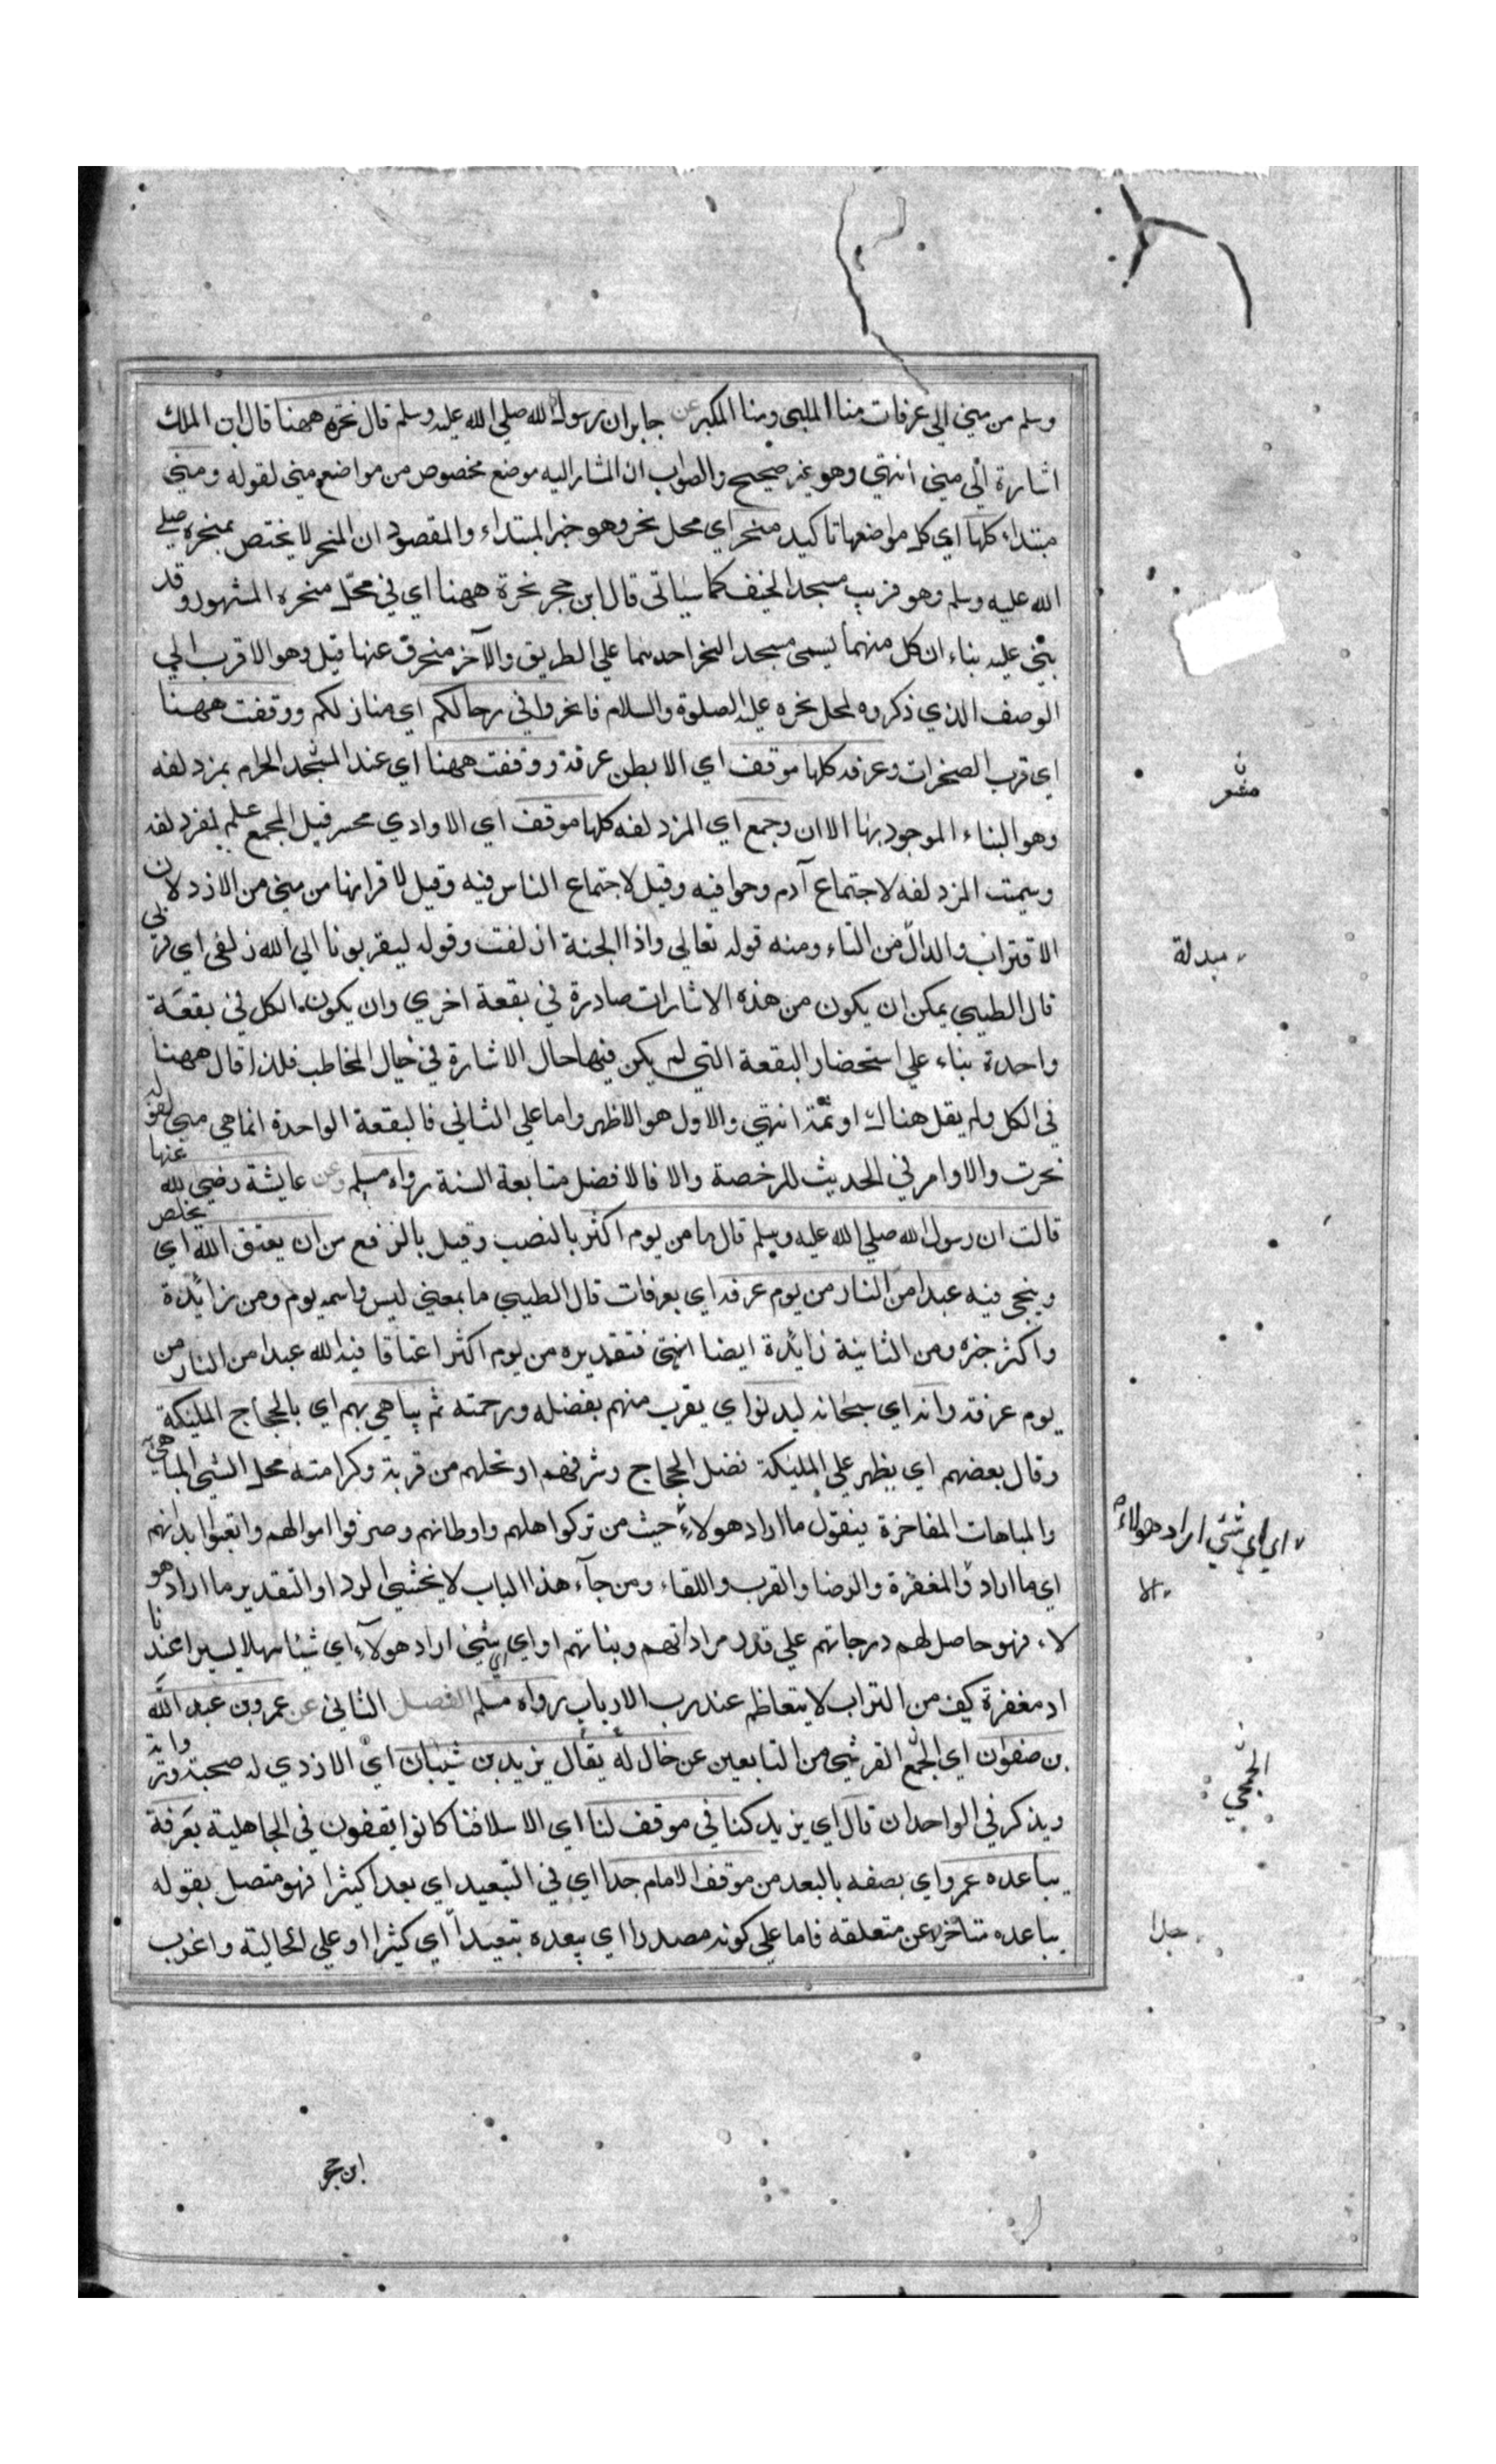 وسلم من مني الي عرفات منا الملبى ومنا المكبر عن جابر ان رسول الله صلي الله عليه وسلم قال نحرت ههنا قال ابن الملك
اشارة الي مني انتهي وهو غير صحيح والصواب ان المشار اليه موضع مخصوص من مواضع مني لقوله ومني
مبتداء كلها اي كل مواضعها تاكيد منحر اي محل نحر وهو خبر المبتداء والمقصود ان المنحر لا يختص بمنحره صلي
الله عليه وسلم وهو قريب مسجد الخيف كما سياتى قال ابن حجر نحرة ههنا اي في محل منحره المشهور وقد
بني عليه بناء ان كل منهما يسمى مسجد النحر احدهما علي الطريق والآخر منحرف عنها قيل وهو الاقرب الي
الوصف الذي ذكروه لمحل نحره عليه الصلوة والسلام فانحروا في رحالكم اي منازلكم ووقفت ههنا
اي قرب الصخرات وعرفه كلها موقف اي الا بطن عرفة ووقفت ههنا اي عند المشجد الحرام بمزدلفه
وهو البناء الموجود بها الاان وجمع اي المزدلفه كلها موقف اي الا وادي محسر قيل المجمع علم لمزدلفه
وسميت المزدلفه لاجتماع آدم وحوا فيه وقيل لاجتماع الناس فيه وقيل لاقرابها من مني من الازدلان
الاقتراب والدال من التاء ومنه قوله تعالي واذا الجنة ازلفت وقوله ليقربونا الي الله زلفى اي قربي
قال الطيبي يمكن ان يكون من هذه الاشارات صادرة في بقعة اخري وان يكون الكل في بقعة
واحدة بناء علي استحضار البقعة التي لم يكن فيها حال الاشارة في خيال المخاطب فلذا قال ههنا
في الكل ولم يقل هناك او ثمة انتهي والاول هو الاظهر واما علي الثاني فالبقعة الواحدة انما هي مني لقوله
نحرت والاوامر في الحديث للرخصة والا فالافضل متابعة السنة رواه مسلم وعن عايشة رضي الله عنها
قالت ان رسول الله صلي الله عليه وسلم قال ما من يوم اكثر بالنصب وقيل بالرفع من ان يعتق الله اي يخلص
وينجي فيه عبدا من النار من يوم عرفه اي بعرفات قال الطيبي ما بمعني ليس واسمه يوم ومن زايدة
واكثر خبره ومن الثانية زايدة ايضا انتهى فتقديره من يوم اكثر اعتاقا فيه الله عبدا من النار من
يوم عرفة وانه اي سبحانه ليدنو اي يقرب منهم بفضله ورحمته ثم يباهي بهم اي بالحجاج المليكة
وقال بعضهم اي يظهر علي المليكة فضل الحجاج وشرفهم او تحلهم من قربة وكرامته محل الشي المباهي
والمباهات المفاخرة فيقول ما اراد هولاء حيث من تركوا اهلهم واوطانهم وصرفوا اموالهم واتعبوا بدانهم
اي ما اراد والمغفرة والرضا والقرب واللقاء ومن جآء هذا الباب لا يخشي الرد او التقدير ما اراد هو
لاء فهو حاصل لهم درجاتهم علي قدر مراداتهم ونياتهم او اي شي اراد هولآء اي شيئا سهلا يسيرا عندنا
اد مغفرة كف من التراب لا يتعاظم عند رب الارباب رواه مسلم الفصل الثاني عن عمرو بن عبد الله
بن صفوان اي الجمع القرشي من التابعين عن خال له يقال يزيد بن شيبان اي الازدي له صحبة ورواية
ويذكر في الواحدان قال اي يزيد كنا في موقف لنا اي الاسلافنا كانوا يقفون في الجاهلية بعرفة
يباعده عمرو اي يصفه بالبعد من موقف الامام جدا اي في التبعيد اي بعدا كثيرا فهو متصل بقوله
يباعده متاخر عن متعلقه فاما علي كونه مصدرا اي يبعده تبعيدا اي كثيرا او علي الحالية واغرب
مشعر
مبدلة
اي اي شي اراد هولاء
الجمحي
جدا
ابن حجر